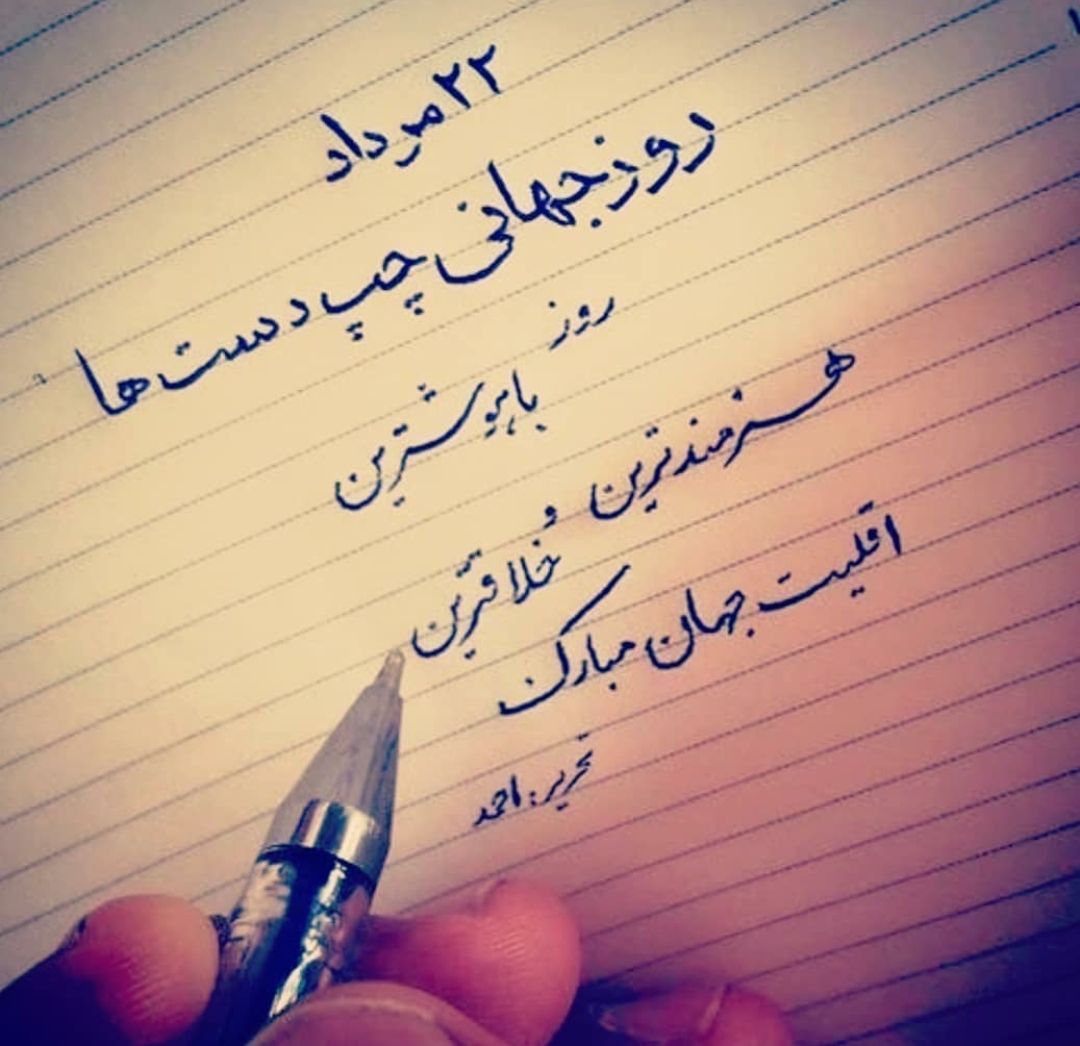 ۲۲ مرداد
روز جهانی چپ دست ها
روز
باهوشترین
هنرمندترین
و خلاقترین
اقلیت جهان مبارک
تحریر: احمد